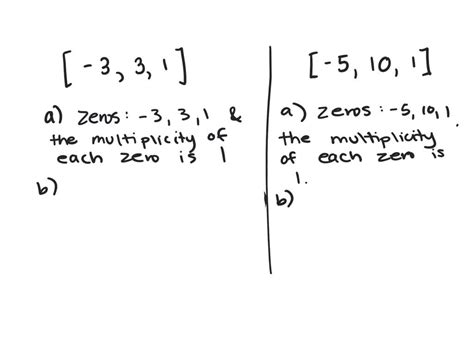 [-3, 3, 1]
a) zeros: -3, 3, 1 &
the multiplicity of
each zero is 1
b)
[-5, 10, 1]
a) zeros: -5, 10, 1,
the multiplicity
of each zero is
1.
b)